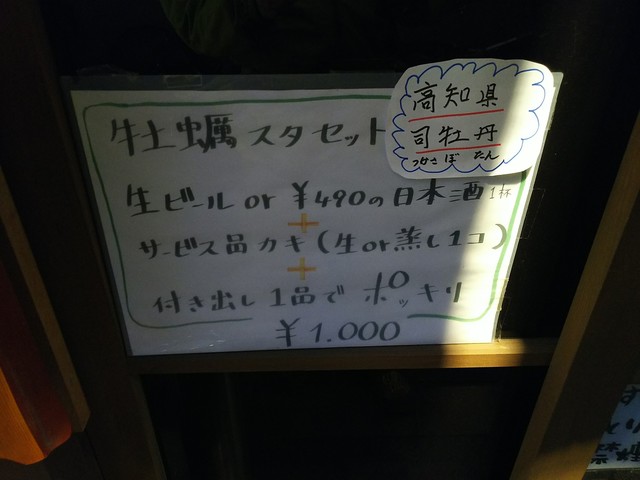 高知県
司牡丹
つかさぼたん
牡蠣スタセット
生ビール or ¥490の日本酒1杯
+
サービス品カキ(生or蒸し1コ)
+
付き出し 1品で ポッキリ
¥1.000